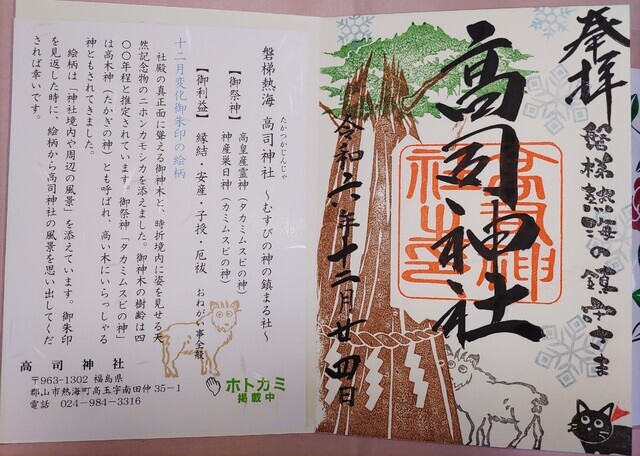 奉拝
磐梯熱海の鎮守さま
高司神社
高司神社之印
令和六年十二月廿四日
たかつかじんじゃ
磐梯熱海 高司神社 ～むすびの神の鎮まる社～
【御祭神】 高皇産霊神(タカミムスビの神)
神産巣日神(カミムスビの神)
【御利益】 縁結・安産・子授・厄祓 おねがい事全般
十二月変化御朱印の絵柄
社殿の真正面に聳える御神木と、時折境内に姿を見せる天
然記念物のニホンカモシカを添えました。御神木の樹齢は四
〇〇年程と推定されています。御祭神「タカミムスビの神」
は高木神(たかぎの神)とも呼ばれ、高い木にいらっしゃる
神ともされてきました。
絵柄は「神社境内や周辺の風景」を添えています。御朱印
を見返した時に、絵柄から高司神社の風景を思い出してくだ
されば幸いです。
高司神社
〒963-1302 福島県
郡山市熱海町高玉字南田仲35-1
電話 024-984-3316
ホトカミ
掲載中